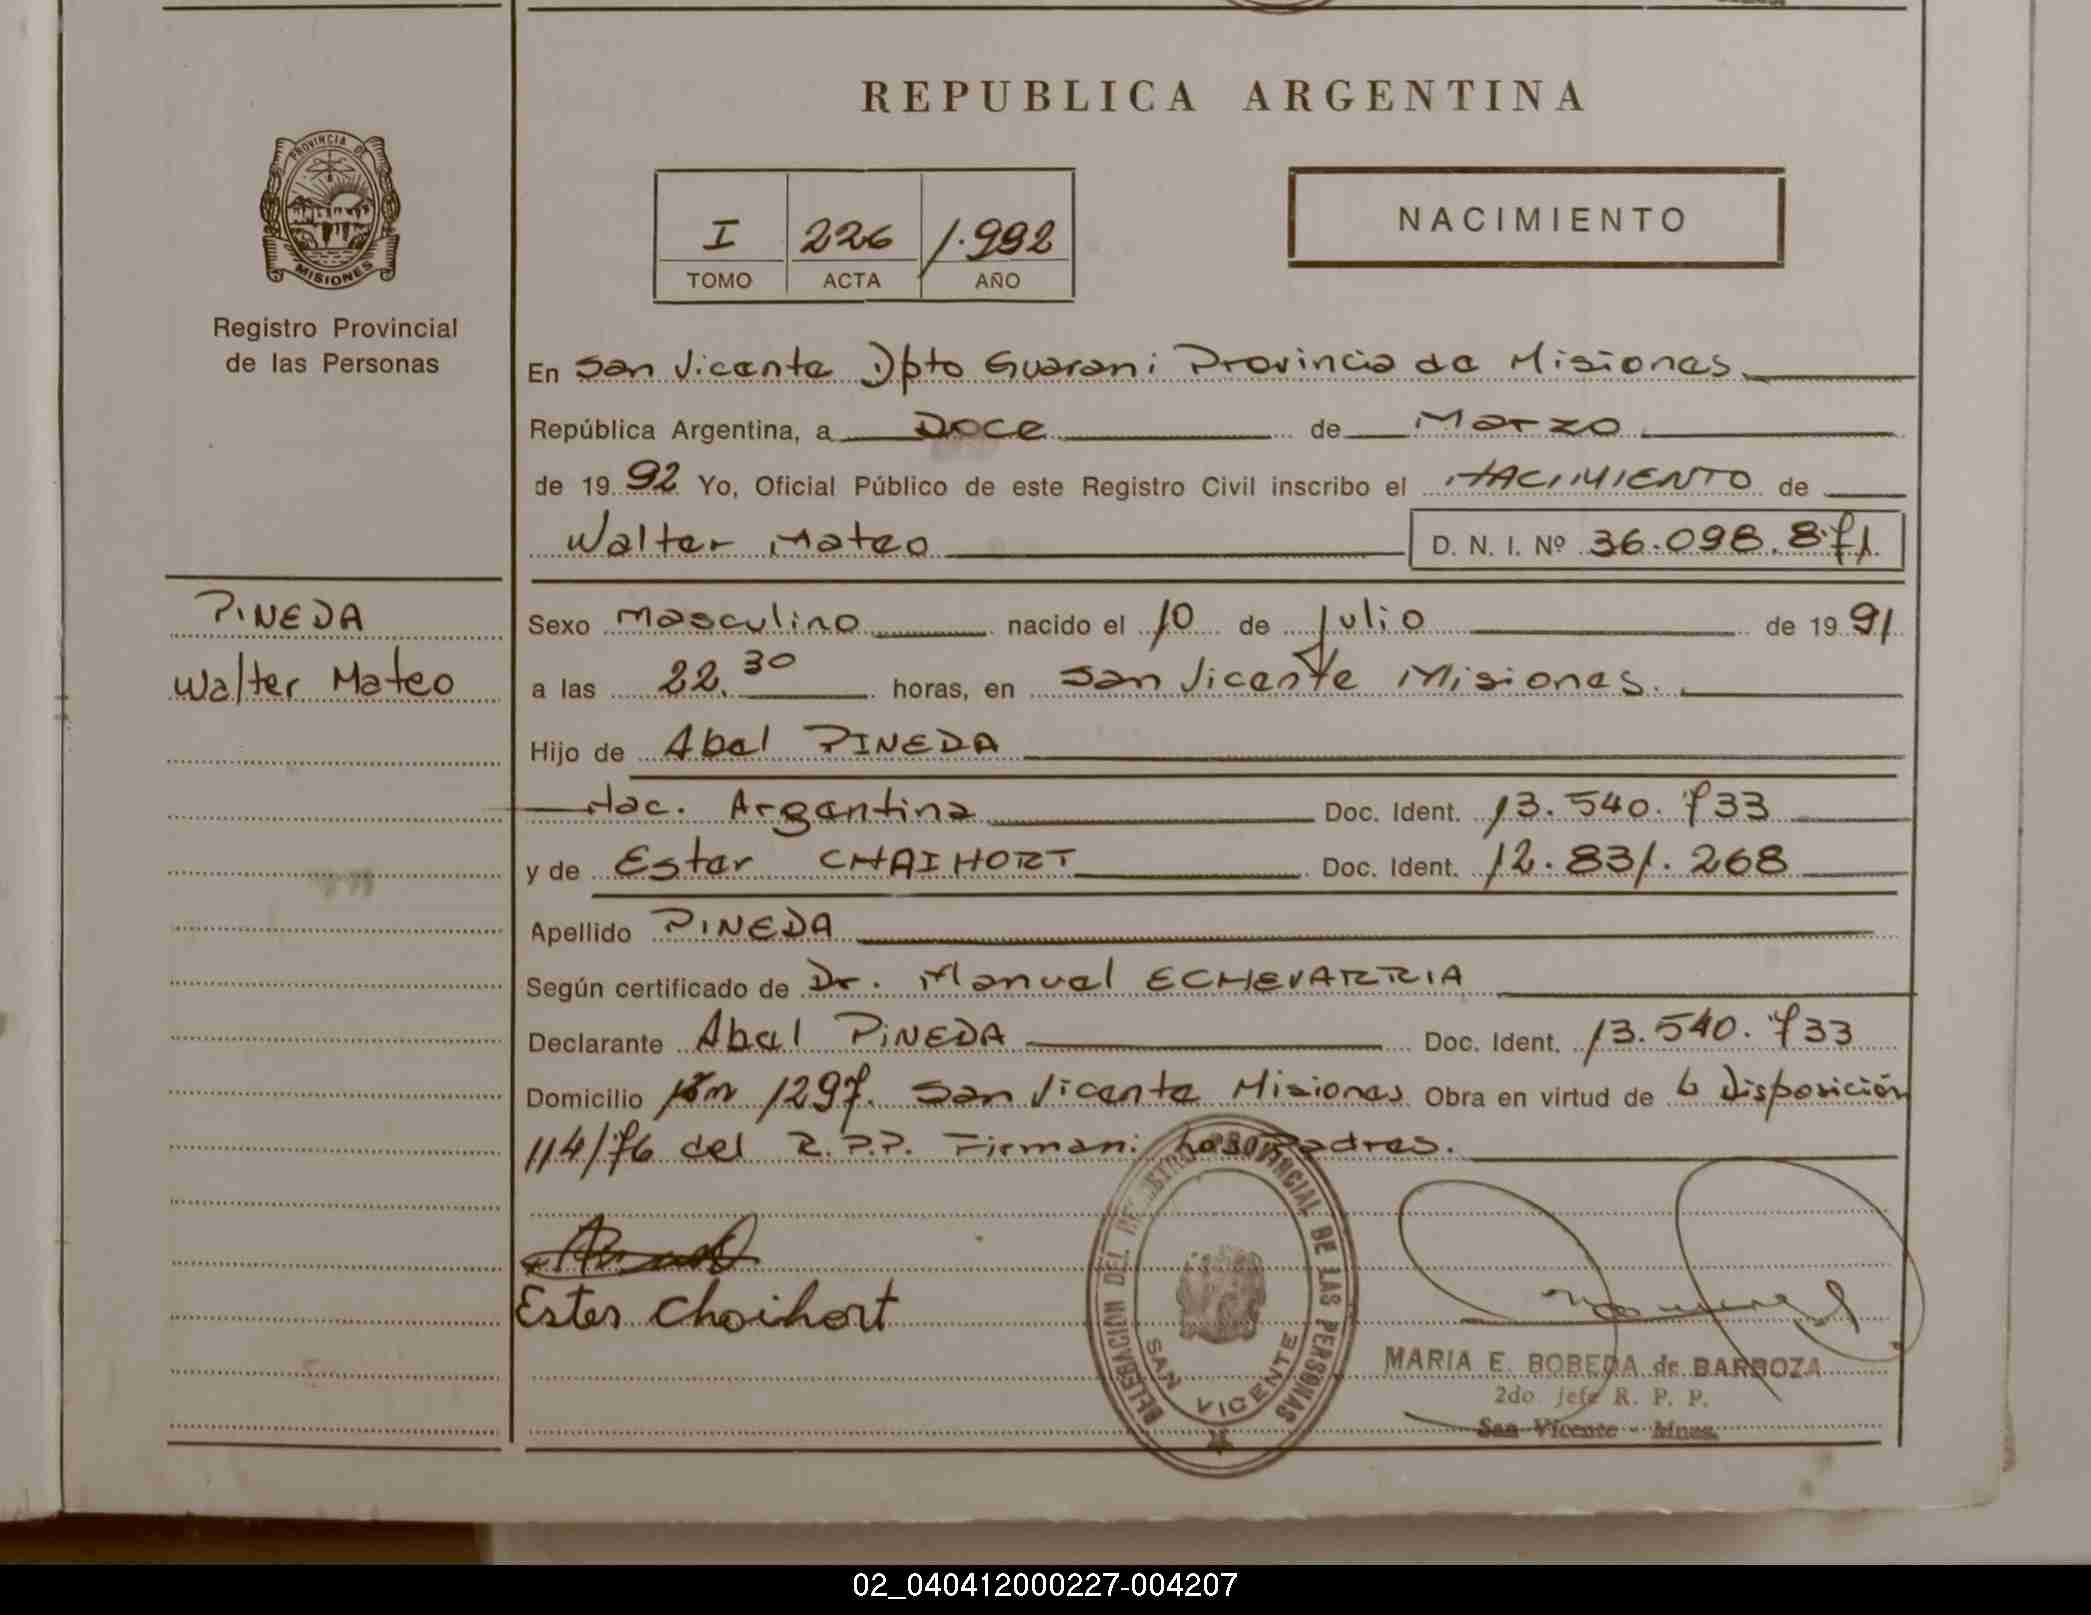 REPUBLICA ARGENTINA
PROVINCIA DE
MISIONES
Registro Provincial
de las Personas
I 226 1.992
TOMO ACTA AÑO
NACIMIENTO
En San Vicente Dpto Guarani Provincia de Misiones
República Argentina, a Doce de Marzo
de 1992 Yo, Oficial Público de este Registro Civil inscribo el NACIMIENTO de
Walter Mateo D. N. I. Nº 36.098.871
PINEDA
Walter Mateo
Sexo masculino nacido el 10 de Julio de 1991
a las 22.30 horas, en San Vicente Misiones.
Hijo de Abel PINEDA
Nac. Argentina Doc. Ident. 13.540.733
y de Ester CHAIHORT Doc. Ident. 12.831.268
Apellido PINEDA
Según certificado de Dr. Manuel ECHEVARRIA
Declarante Abel PINEDA Doc. Ident. 13.540.733
Domicilio Km 1297. San Vicente Misiones Obra en virtud de la Disposición
114/76 del R.P.P. Firman: Los Padres.
Ester Choihort
DELEGACION DEL REGISTRO PROVINCIAL DE LAS PERSONAS
SAN VICENTE
MARIA E. BOBEDA de BARBOZA
2do. jefe R. P. P.
San Vicente - Mnes.
02_040412000227-004207